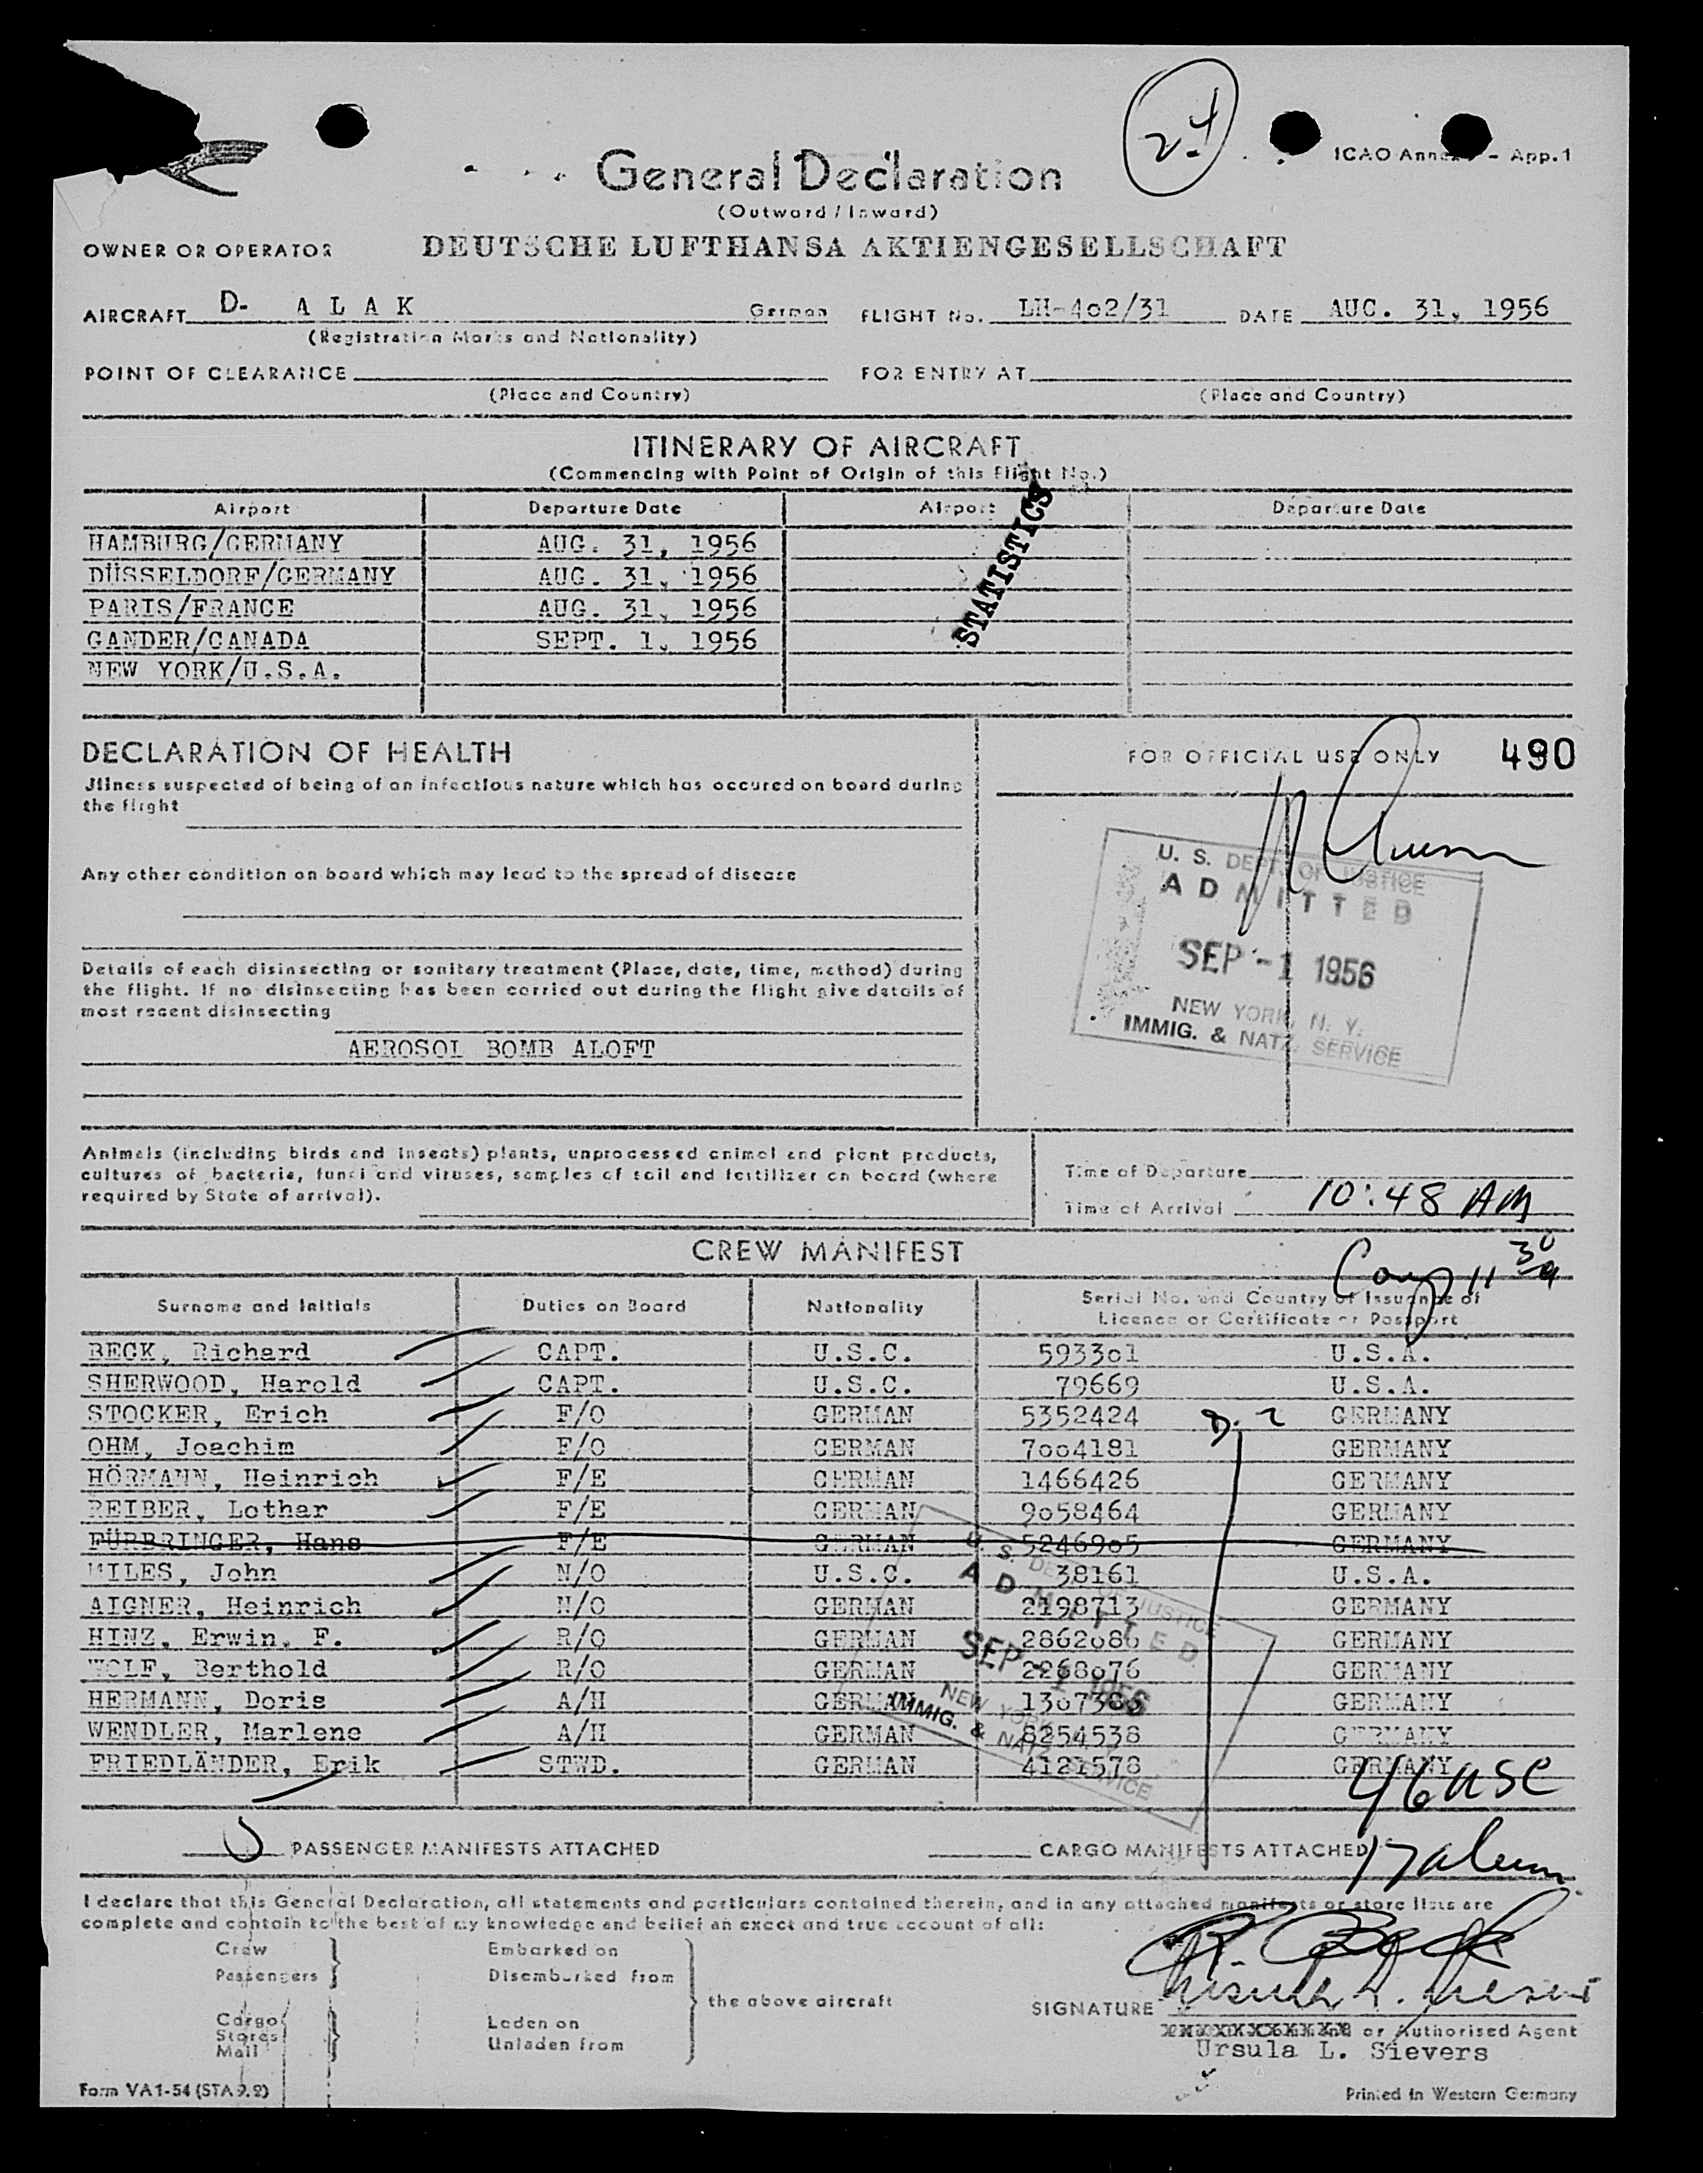 24
ICAO Annex - App.1
General Declaration
(Outward / Inward)
OWNER OR OPERATOR DEUTSCHE LUFTHANSA AKTIENGESELLSCHAFT
AIRCRAFT D- A L A K German FLIGHT No. LH-4o2/31 DATE AUG. 31, 1956
(Registration Marks and Nationality)
POINT OF CLEARANCE FOR ENTRY AT
(Place and Country) (Place and Country)
ITINERARY OF AIRCRAFT
(Commencing with Point of Origin of this Flight No.)
Airport Departure Date Airport Departure Date
HAMBURG/GERMANY AUG. 31, 1956
DÜSSELDORF/GERMANY AUG. 31, 1956
PARIS/FRANCE AUG. 31, 1956
GANDER/CANADA SEPT. 1, 1956
NEW YORK/U.S.A.
STATISTICS
DECLARATION OF HEALTH
Jllness suspected of being of an infectious nature which has occured on board during
the flight
Any other condition on board which may lead to the spread of disease
Details of each disinsecting or sanitary treatment (Place, date, time, method) during
the flight. If no disinsecting has been carried out during the flight give details of
most recent disinsecting
AEROSOL BOMB ALOFT
FOR OFFICIAL USE ONLY 490
U. S. DEPT. OF JUSTICE
ADMITTED
SEP -1 1956
NEW YORK, N. Y.
IMMIG. & NATZ. SERVICE
Animals (including birds and insects) plants, unprocessed animal and plant products,
cultures of bacteria, fungi and viruses, samples of soil and fertilizer on board (where
required by State of arrival).
Time of Departure
Time of Arrival 10:48 AM
CREW MANIFEST
Surname and Initials Duties on Board Nationality Serial No. and Country of Issuance of
Licence or Certificate or Passport
BECK, Richard CAPT. U.S.C. 5933o1 U.S.A.
SHERWOOD, Harold CAPT. U.S.C. 79669 U.S.A.
STOCKER, Erich F/O GERMAN 5352424 GERMANY
OHM, Joachim F/O GERMAN 7oo4181 GERMANY
HÖRMANN, Heinrich F/E GERMAN 1466426 GERMANY
REIBER, Lothar F/E GERMAN 9o58464 GERMANY
FÜRBRINGER, Hans F/E GERMAN 52469o5 GERMANY
MILES, John N/O U.S.C. 38161 U.S.A.
AIGNER, Heinrich N/O GERMAN 2198713 GERMANY
HINZ, Erwin, F. R/O GERMAN GERMANY
WOLF, Berthold R/O GERMAN 2268o76 GERMANY
HERMANN, Doris A/H GERMAN GERMANY
WENDLER, Marlene A/H GERMAN 8254538 GERMANY
FRIEDLÄNDER, Erik STWD. GERMAN 4121578 GERMANY
D. 2
U. S. DEPT. OF JUSTICE
ADMITTED
SEP -1 1956
NEW YORK, N. Y.
IMMIG. & NATZ. SERVICE
46 USC
17 alien
PASSENGER MANIFESTS ATTACHED CARGO MANIFESTS ATTACHED
I declare that this General Declaration, all statements and particulars contained therein, and in any attached manifests or store lists are
complete and contain to the best of my knowledge and belief an exact and true account of all:
Crew Embarked on
Passengers Disembarked from
the above aircraft
Cargo Laden on
Stores Unladen from
Mail
R. Beck
Ursula L. Sievers
SIGNATURE
or Authorised Agent
Ursula L. Sievers
Form VA1-54 (STA 9.2) Printed in Western Germany